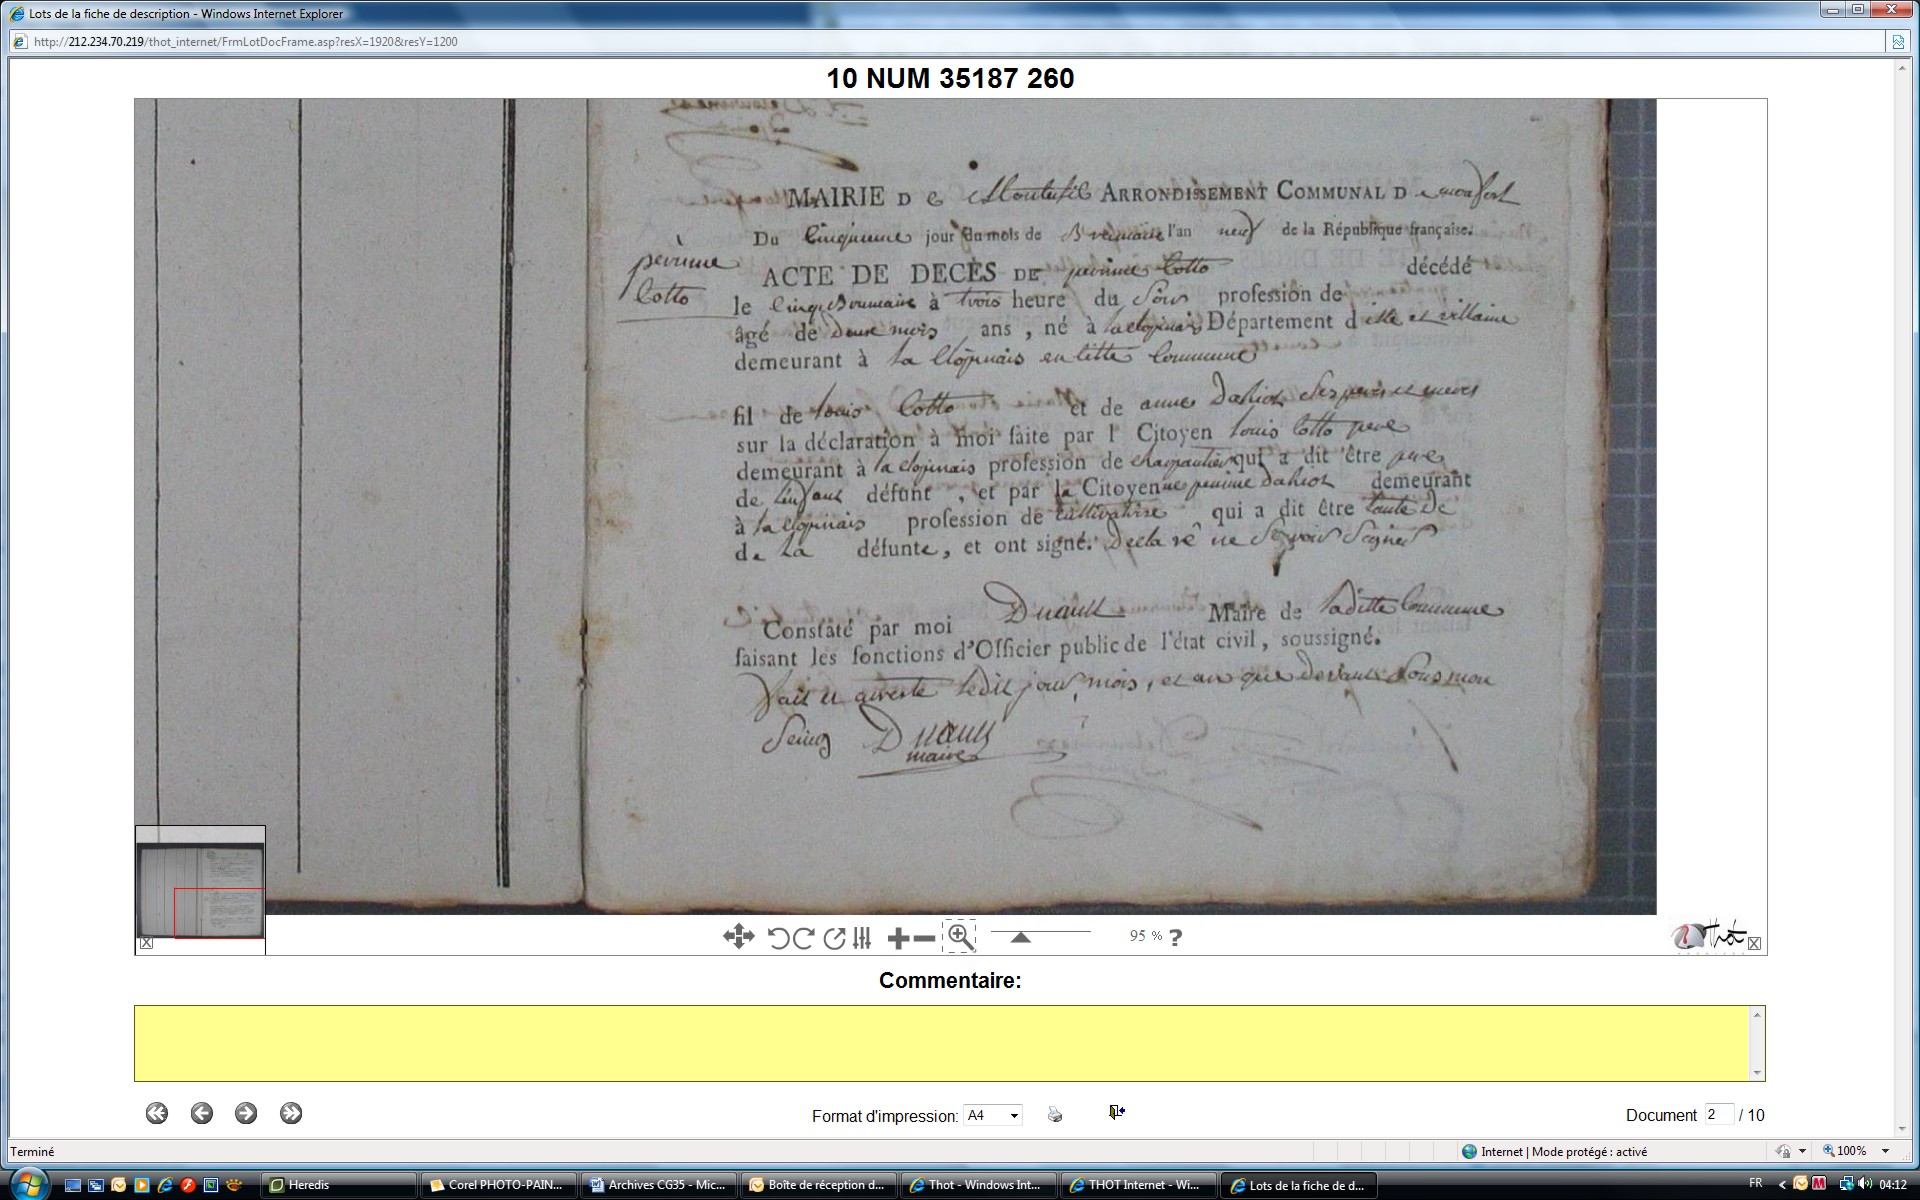 Lots de la fiche de description - Windows Internet Explorer
http://212.234.70.219/thot_internet/FrmLotDocFrame.asp?resX=1920&resY=1200
10 NUM 35187 260
MAIRIE DE ARRONDISSEMENT COMMUNAL De monfort
Du Cinquieme jour du mois de Brumaire l'an neuf de la République française.
perinne
Cotto
ACTE DE DECÈS DE perinne Cotto décédé
le Cinq Brumaire à trois heure du Soir profession de
âgé de deux mois ans, né à la clopinais Département d ille et villaine
demeurant à la Clopinais en litte Commune
fil de louis Cotto et de anne Dahiot Ses peres et meres
sur la déclaration à moi faite par l Citoyen louis Cotto pere
demeurant à la clopinais profession de charpantier qui a dit être pere
de lenfant défunt, et par la Citoyenne perinne Dahiot demeurant
à la clopinais profession de cultivatrice qui a dit être tante de
de La défunte, et ont signé. Declaré ne Savoir Seigner
Constaté par moi Duault Maire de laditte Commune
faisant les fonctions d'Officier public de l'état civil, soussigné.
Fait et ledit jour, mois, et an que devant Sous mon
Seing Duault
maire
95 % ?
Thot
Commentaire:
Format d'impression: A4
Document 2 / 10
Terminé
Internet | Mode protégé : activé
100%
Heredis
Corel PHOTO-PAIN...
Archives CG35 - Mic...
Boîte de réception d...
Thot - Windows Int...
THOT Internet - Wi...
Lots de la fiche de d...
FR
04:12